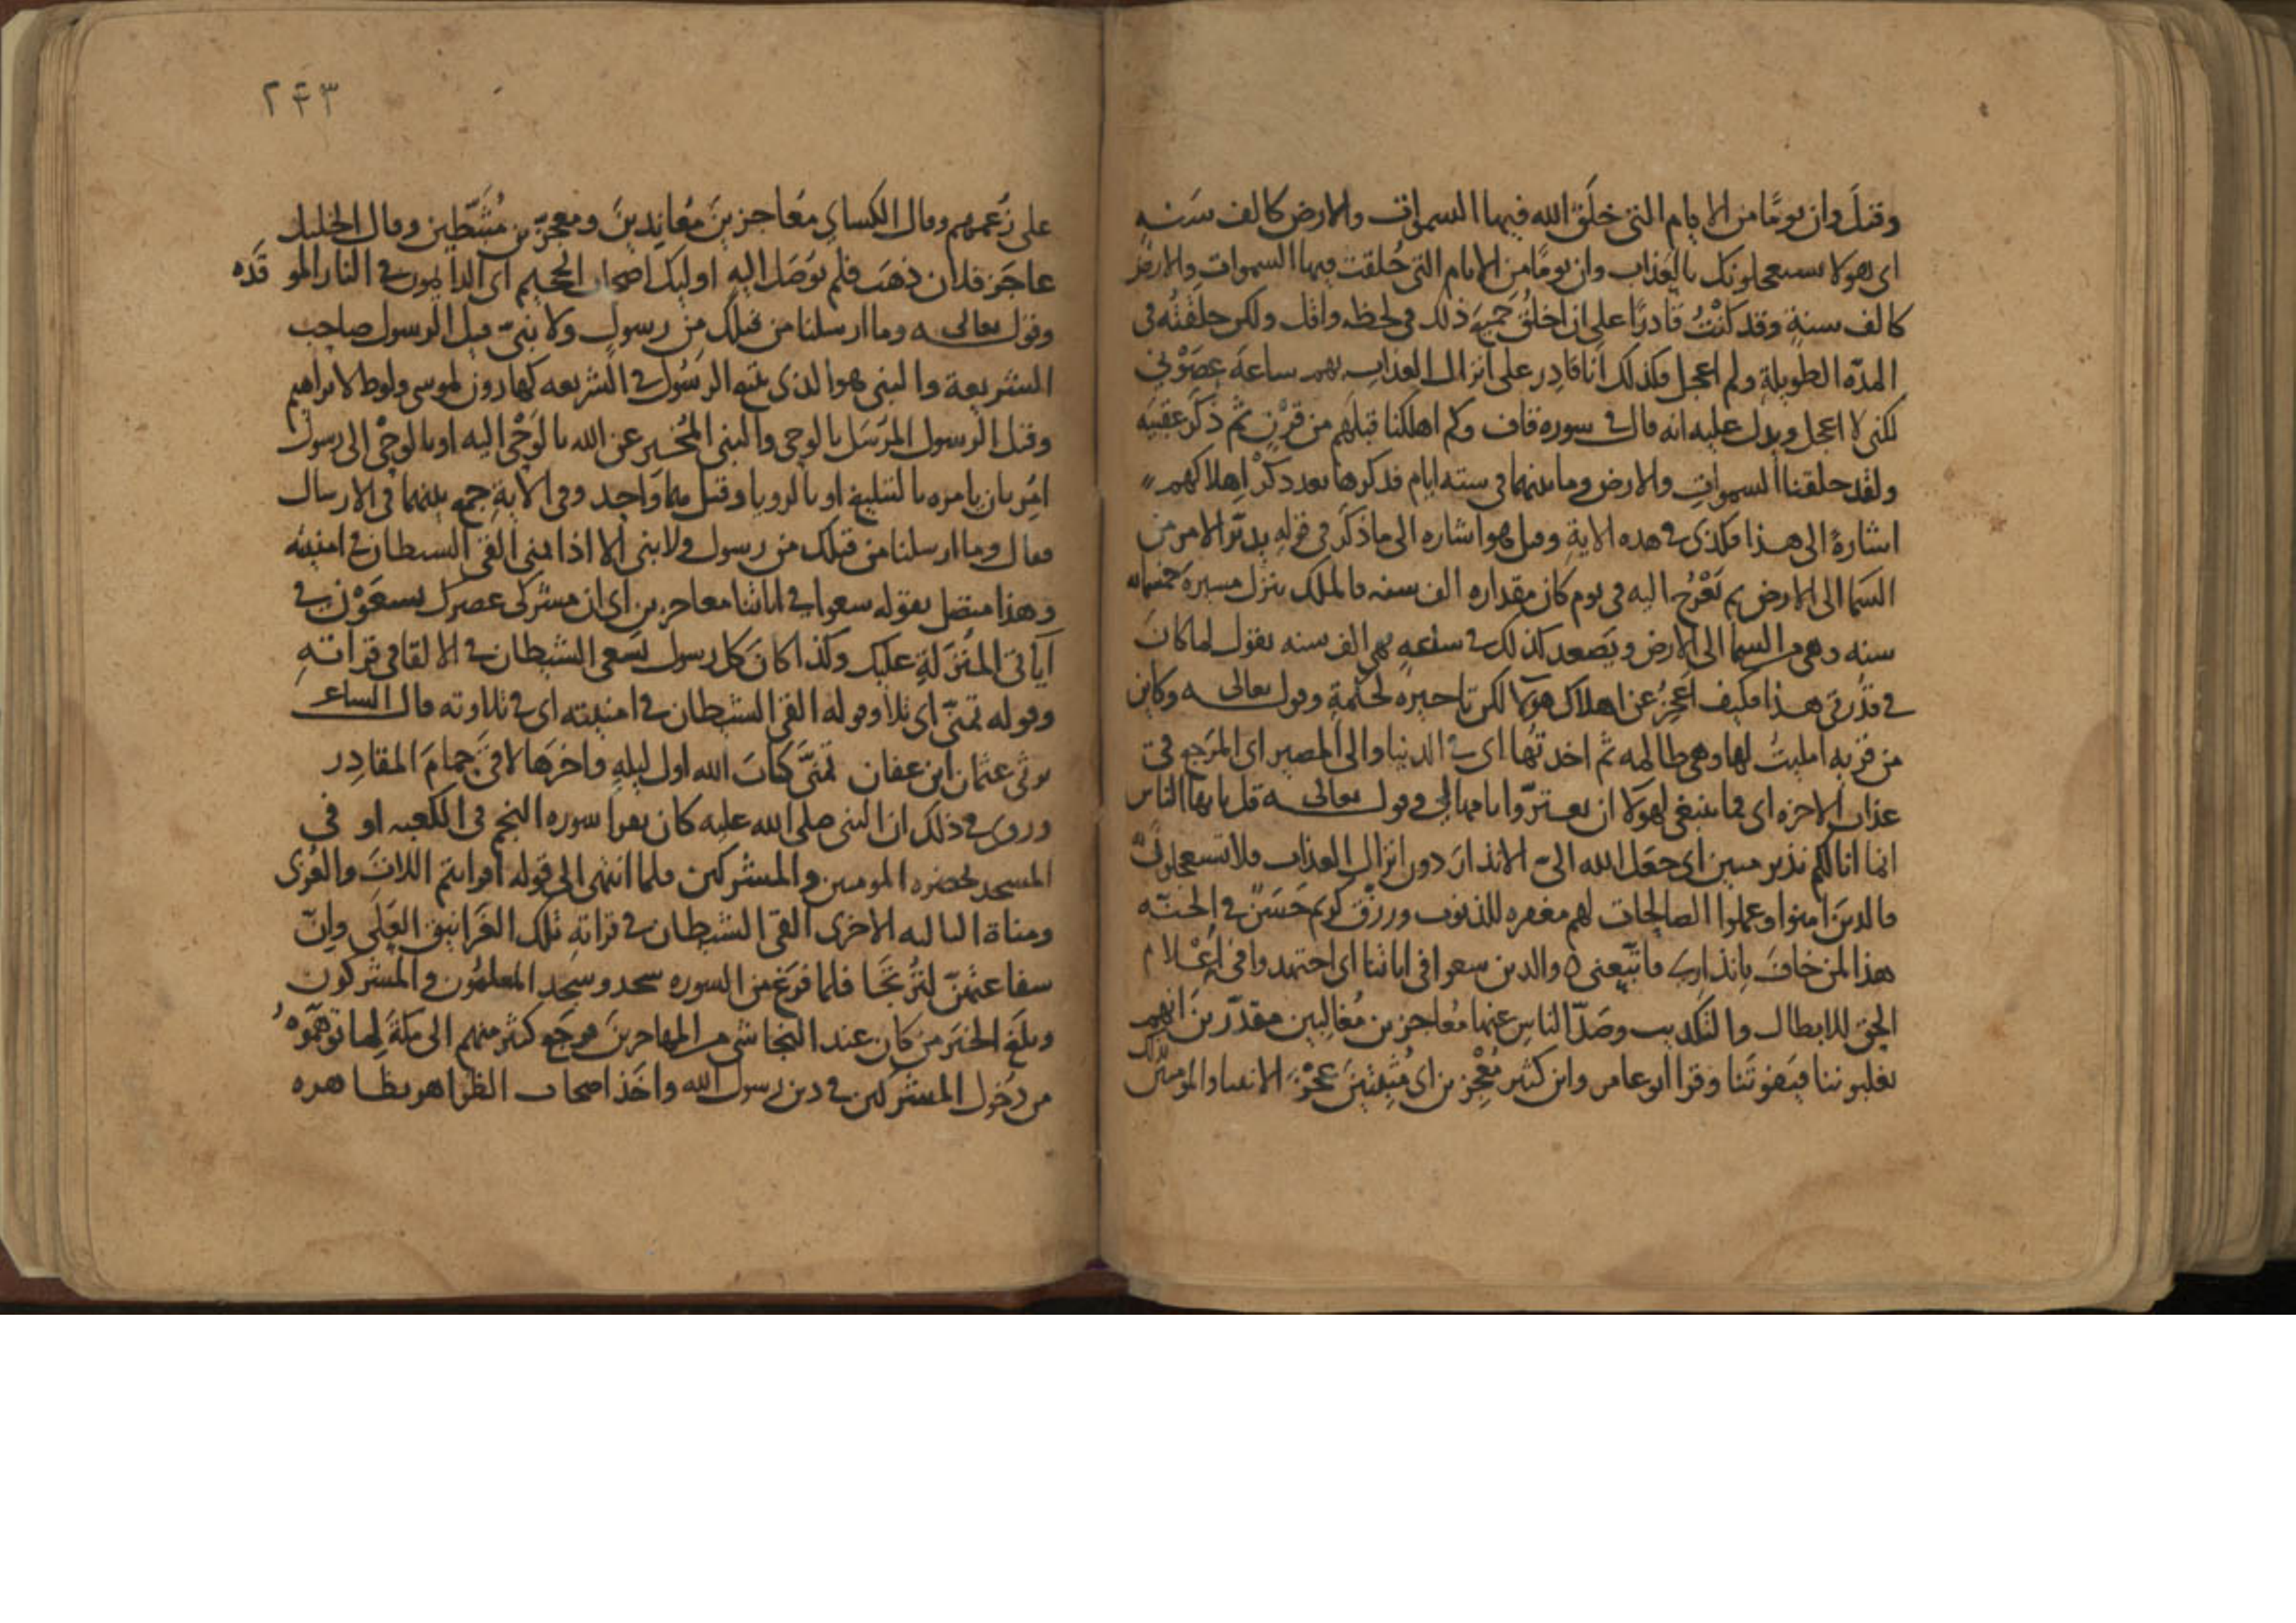 وقيل وان يوما من الايام التى خلق الله فيها السموات والارض كالف سنه
اى هولا يستعجلونك بالعذاب وان يوما من الايام التى خلقت فيها السموات والارض
كالف سنة وقد كنت قادرا على ان اخلق جميع ذلك فى لحظه واقل ولكن خلقته فى
المدة الطويلة ولم اعجل فكذلك انا قادر على انزال العذاب بهم ساعة عصونى
لكنى لا اعجل ويدل عليه انه قال فى سوره قاف وكم اهلكنا قبلهم من قرن ثم ذكر عقيبه
ولقد خلقنا السموات والارض وما بينهما فى سته ايام فذكرها بعد ذكر اهلاكهم
اشارة الى هذا فكذى فى هذه الاية وقيل هو اشاره الى ما ذكر فى قوله يدبر الامر من
السما الى الارض ثم يعرج اليه فى يوم كان مقداره الف سنه فالملك ينزل مسيرة خمسمايه
سنه وهى من السما الى الارض ويصعد كذلك فى ساعه فهى الف سنه يقول لما كان
فى قدرتى هذا فكيف اعجز عن اهلاك هولا لكن تاخيره لحكمة وقوله تعالى وكاين
من قريه امليت لها وهى ظالمه ثم اخذتها اى فى الدنيا والى المصير اى المرجع فى
عذاب الاخره اى فما ينبغى لهولا ان يغتروا بامهالى وقوله تعالى قل يايها الناس
انما انا لكم نذير مبين اى جعل الله الى الانذار دون انزال العذاب فلا تستعجلون
فالدين امنوا وعملوا الصالحات لهم مغفره للذنوب ورزق كريم حسن فى الجنه
هذا لمن خاف بانذارى فاتبعنى ٥ والدين سعوا فى اياتنا اى اجتهدوا فى اعلام
الحق للابطال والتكديب وصد الناس عنها معاجزين مغالبين مقدرين انهم
يغلبوننا فيفوتننا وقرا ابو عامر وابن كثير معجزين اى مثبتين عجز الانبيا والمومنين
٢٤٣
على زعمهم وقال الكساى معاجزين معاندين ومعجزين مثبطين وقال الخليل
عاجز فلان ذهب فلم يوصل اليه اوليك اصحاب الجحيم اى الدايمون فى النار الموقده
وقوله تعالى وما ارسلنا من قبلك من رسول ولا نبى قيل الرسول صاحب
الشريعة والنبى هو الذى يتبع الرسول فى الشريعه كهارون لموسى ولوط لابراهيم
وقيل الرسول المرسل بالوحى والنبى المخبر عن الله بالوحى اليه او بالوحى الى رسول
امر بان يامره بالتبليغ او بالرويا وقيل هما واحد وفى الاية جمع بينهما فى الارسال
فقال وما ارسلنا من قبلك من رسول ولا نبى الا اذا تمنى القى الشيطان فى امنيته
وهذا متصل بقوله سعوا فى اياتنا معاجزين اى ان مشركى عصرك يسعون فى
آياتى المنزلة عليك وكذا كان كل رسول يسعى الشيطان فى الالقا فى قراته
وقوله تمنى اى تلا وقوله القى الشيطان فى امنيته اى فى تلاوته قال الساعر
يرثى عثمان ابن عفان تمنى كتاب الله اول ليله واخرها لاقى حمام المقادر
وروى فى ذلك ان النبى صلى الله عليه كان يقرا سوره النجم فى الكعبه او فى
المسجد بحضره المومنين والمشركين فلما انتهى الى قوله افرايتم اللات والعزى
ومناة الثالثه الاخرى القى الشيطان فى قراته تلك الغرانيق العلى وان
شفاعتهن لترتجا فلما فرغ من السوره سجد وسجد المسلمون والمشركون
وبلغ الخبر من كان عند النجاشى من المهاجرين فرجع كثير منهم الى مكة لما توهموه
من دخول المشركين فى دين رسول الله واخذ اصحاب الظواهر بظاهره